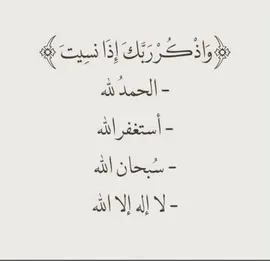 ﴿وَاذْكُرْ رَبَّكَ إِذَا نَسِيتَ﴾
- الحمدُ لله
- أستغفر الله
- سُبحان الله
- لا إله إلا الله